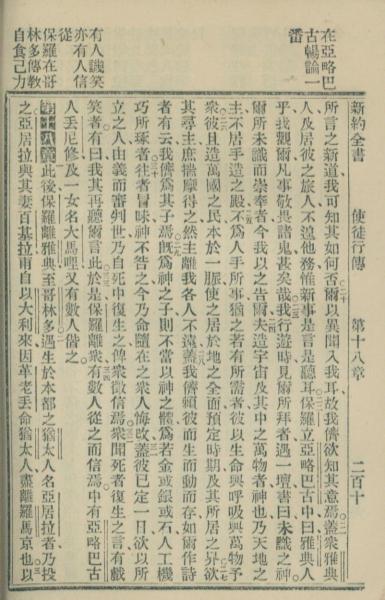 在亞略巴
古暢論一
番
有人譏笑
亦有人信
從
保羅在哥
林多傳教
自食己力
新約全書 使徒行傳 第十八章 二百十
所言之新道我可知其如何否爾以異聞入我耳故我儕欲知其意焉蓋衆雅典
人及居彼之旅人不遑他務惟新事是言是聽耳保羅立亞略巴古中曰雅典人
乎我觀爾凡事敬畏諸鬼甚矣哉我行遊時見爾所拜者遇一壇書曰未識之神
爾所未識而崇奉者今我以之告爾夫造宇宙及其中之萬物者神也乃天地之
主不居手造之殿不爲人手所事猶之若有所需者彼以生命與呼吸與萬物予
衆彼且造萬國之民本於一脈使之居於地之全面預定時期及其所居之界欲
其尋主庶揣摩得之然主離我各人不遠蓋我儕賴彼而生而動而存如爾作詩
者有云我儕爲其子焉旣爲神之子則不當以神之體爲若金或銀或石人工機
巧所琢者往者冒昧神不告之今乃命隨在之衆人悔改蓋彼已定一日欲以所
立之人由義而審判世乃自死中復生之俾衆徵信焉衆聞死者復生之言有戲
笑者有曰我其再聽爾言此於是保羅離衆有數人從之而信焉中有亞略巴古
人丟尼修及一女名大馬哩又有數人偕之
第十八章此後保羅離雅典至哥林多遇生於本都之猶太人名亞居拉者乃投
之亞居拉與其妻百基拉甫自以大利來因革老丟命猶太人盡離羅馬京也以